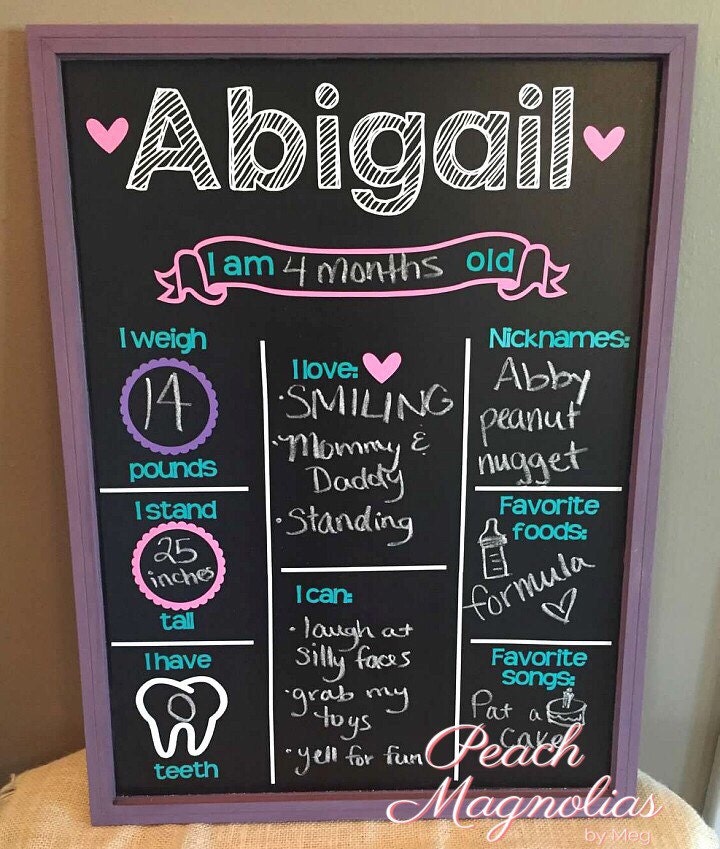 Abigail
I am 4 months old
I weigh
14
pounds
I stand
25
inches
tall
I have
0
teeth
I love:
·SMILING
·Mommy &
Daddy
·Standing
I can:
·laugh at
silly faces
·grab my
toys
·yell for fun
Nicknames:
Abby
peanut
nugget
Favorite
foods:
formula
Favorite
songs:
Pat a
Cake
Peach
Magnolias
by Meg